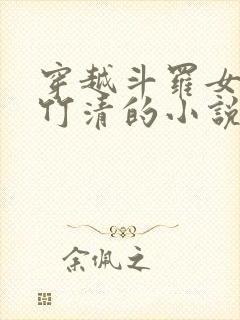 穿越斗羅女
竹清的小說
余佩之